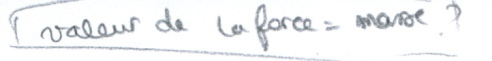 valeur de la force = masse ?